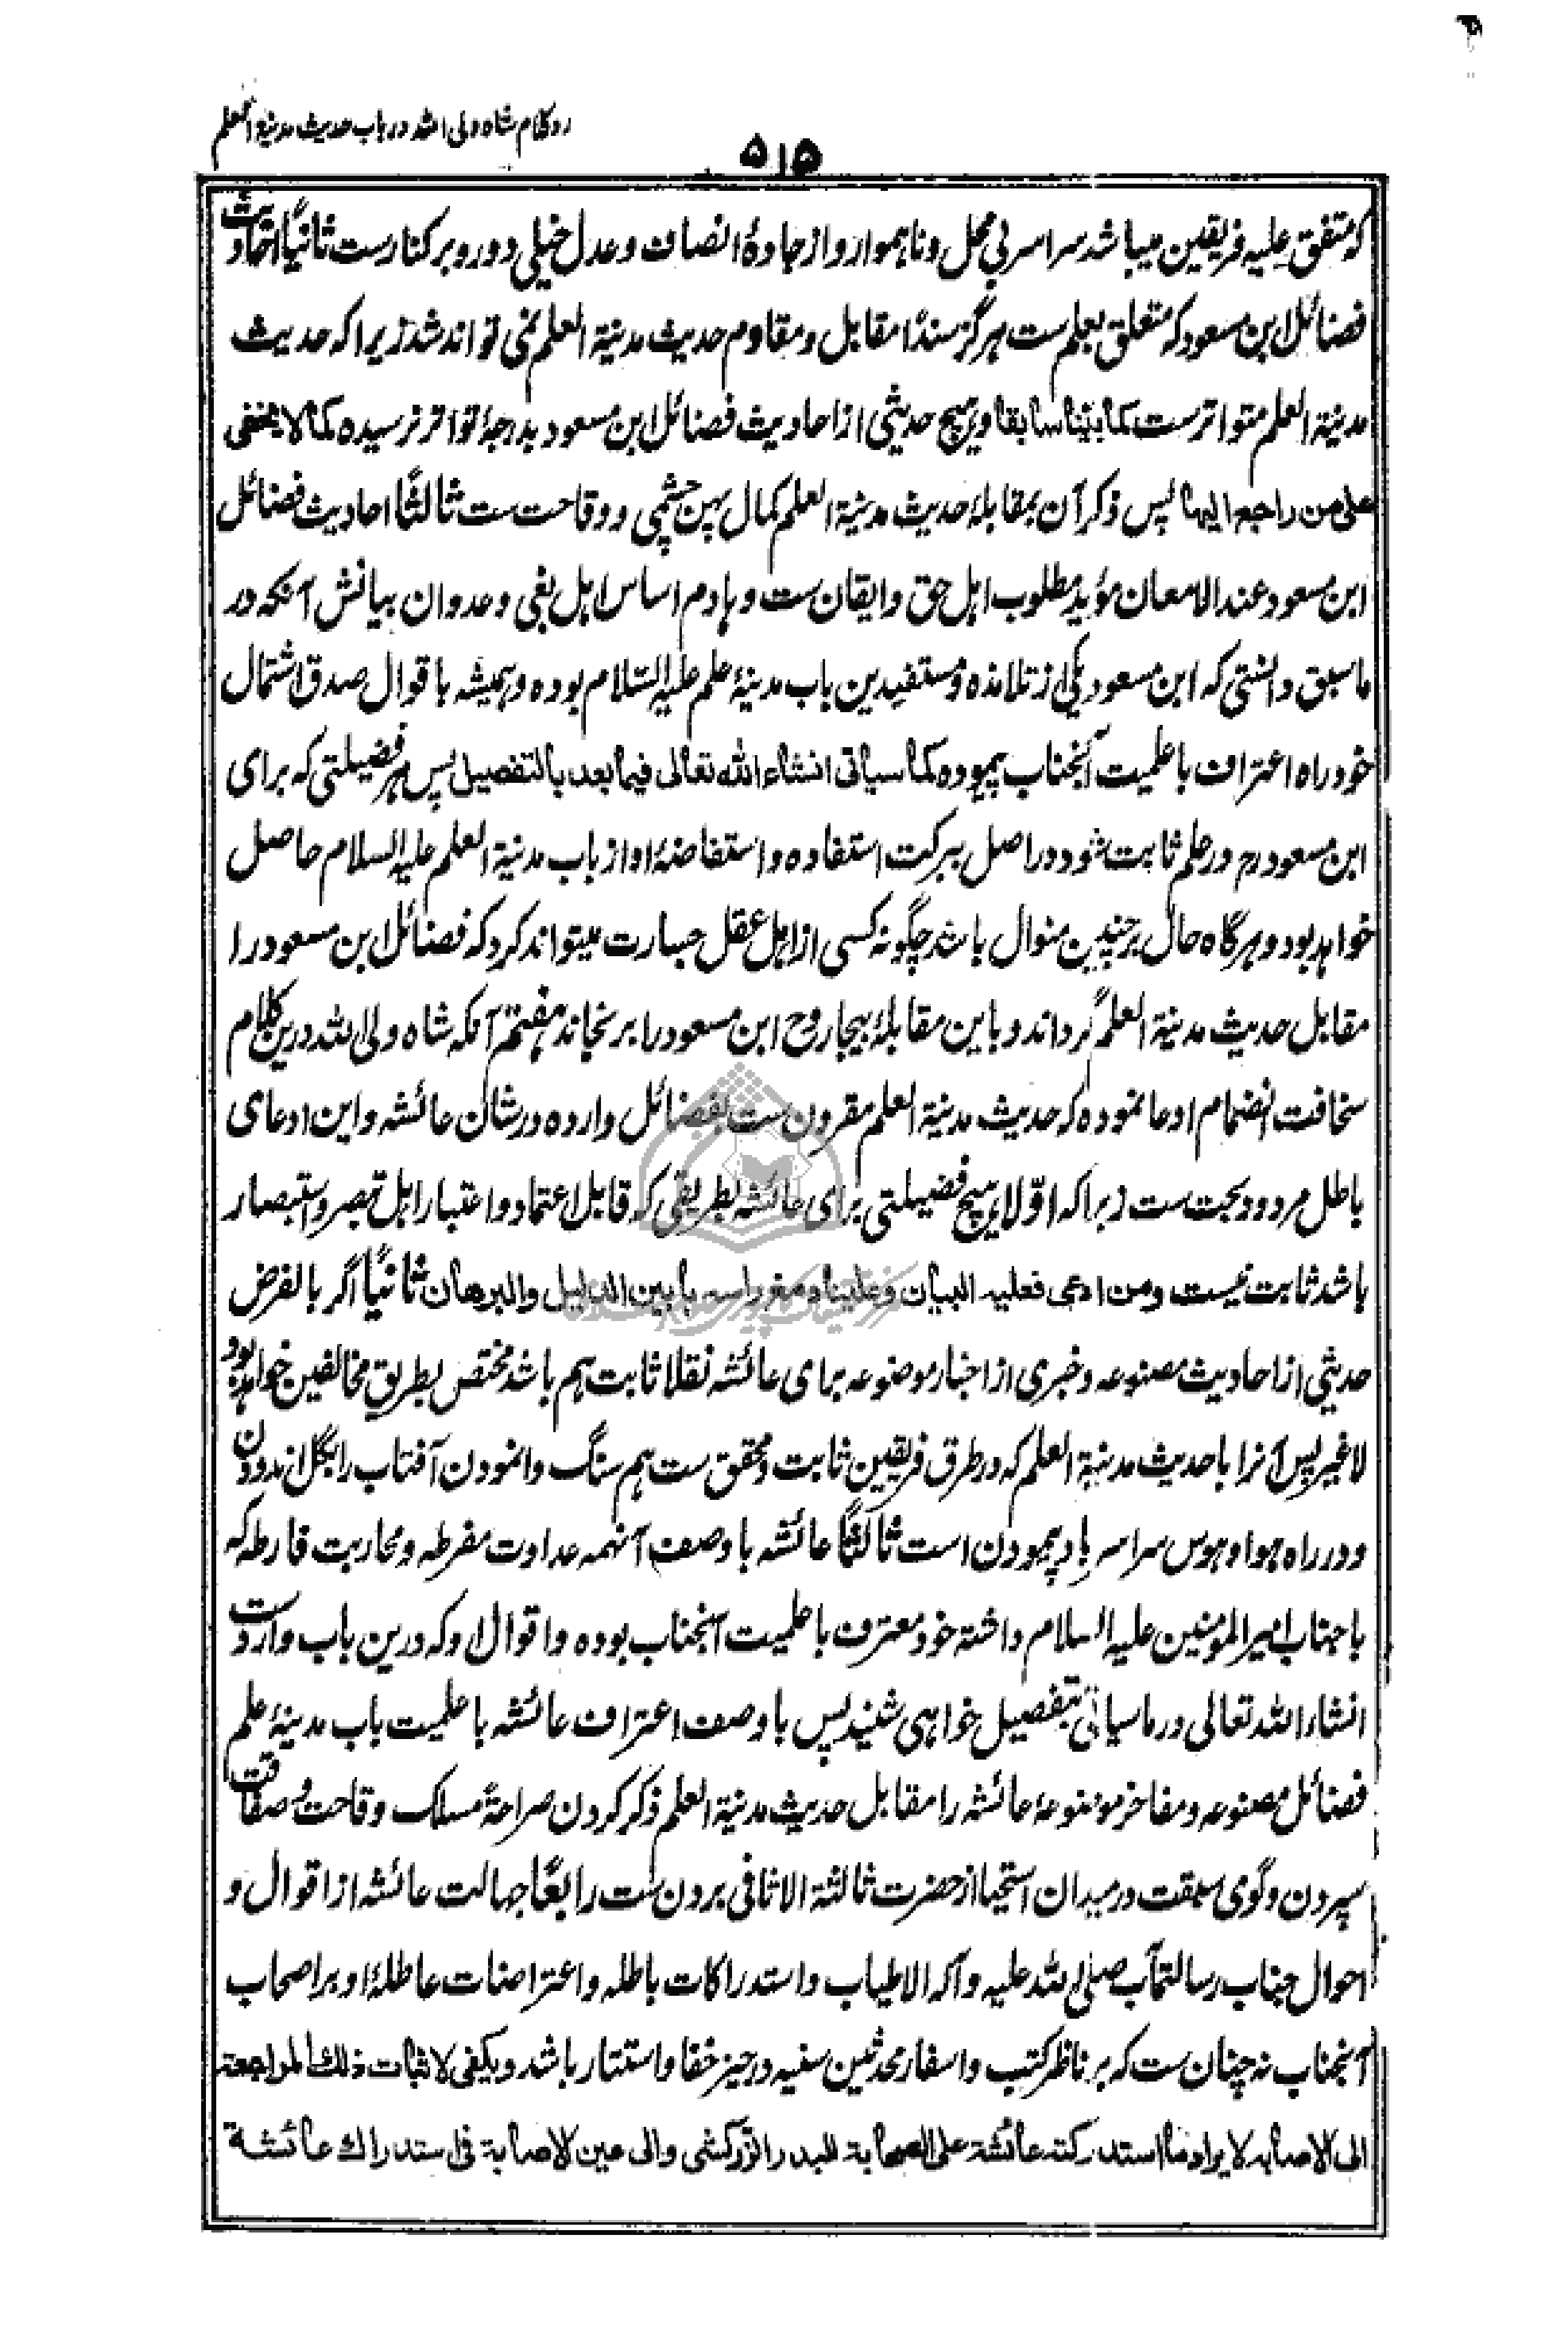 رد کلام شاه ولی الله در باب حدیث مدینة العلم
۵۱۵
که متفق علیه فریقین میباشد سراسر بی محل و ناهموار و از جادهٔ انصاف و عدل خیلی دور و برکنارست ثانیًا احادیث
فضائل ابن مسعود که متعلق بعلم ست هرگز سندًا مقابل و مقاوم حدیث مدینة العلم نمی تواند شد زیرا که حدیث
مدینة العلم متواترست کما بیّنا سابقا و هیچ حدیثی از احادیث فضائل ابن مسعود بدرجهٔ تواتر نرسیده کما لا یخفی
علی من راجع الیها پس ذکر آن بمقابلهٔ حدیث مدینة العلم کمال پهن چشمی و وقاحت ست ثالثًا احادیث فضائل
ابن مسعود عند الامعان مؤید مطلوب اهل حق و ایقان ست و هادم اساس اهل بغی و عدوان بیانش آنکه در
ما سبق دانستی که ابن مسعود یکی از تلامذه و مستفیدین باب مدینهٔ علم علیه السلام بوده و همیشه باقوال صدق اشتمال
خود راه اعتراف باعلمیت آنجناب پیموده کما سیاتی انشاء الله تعالی فیما بعد بالتفصیل پس هر فضیلتی که برای
ابن مسعود رم در علم ثابت شود در اصل ببرکت استفاده و استفاضهٔ او از باب مدینة العلم علیه السلام حاصل
خواهد بود و هرگاه حال بر چنین منوال باشد چگونه کسی از اهل عقل جسارت میتواند کرد که فضائل ابن مسعود را
مقابل حدیث مدینة العلم گرداند و باین مقابلهٔ بیجا روح ابن مسعود را برنجاند هفتم آنکه شاه ولی الله درین کلام
سخافت انضمام ادعا نموده که حدیث مدینة العلم مقرون ست بفضائل وارده در شان عائشه و این ادعای
باطل مردود بحت ست زیرا که اوّلا هیچ فضیلتی برای عائشه بطریقی که قابل اعتماد و اعتبار اهل تبصر و استبصار
باشد ثابت نیست ومن ادعی فعلیه البیان وعلینا دمغ راسه بابین الدلیل والبرهان ثانیًا اگر بالفرض
حدیثی از احادیث مصنوعه و خبری از اخبار موضوعه برای عائشه نقلا ثابت هم باشد مختص بطریق مخالفین خواهد بود
لا غیر پس آنرا با حدیث مدینة العلم که در طرق فریقین ثابت و محقق ست هم سنگ وانمودن آفتاب را بگل اندودن
و در راه هوا و هوس سراسر باد پیمودن است ثالثًا عائشه با وصف آنهمه عداوت مفرطه و محاربت فارطه که
با جناب امیر المومنین علیه السلام داشته خود معترف باعلمیت آنجناب بوده و اقوال او که درین باب واردست
انشاء الله تعالی در ما سیاتی بتفصیل خواهی شنید پس با وصف اعتراف عائشه باعلمیت باب مدینهٔ علم
فضائل مصنوعه و مفاخر موضوعهٔ عائشه را مقابل حدیث مدینة العلم ذکر کردن صراحةً مسلک وقاحت و صفاقت
سپردن و گوی سبقت در میدان استحیا از حضرت ثالثة الاثافی بردن ست رابعًا جهالت عائشه از اقوال و
احوال جناب رسالتمآب صلی الله علیه و آله الاطیاب و استدراکات باطله و اعتراضات عاطلهٔ او بر اصحاب
آنجناب نه چنان ست که بر ناظر کتب و اسفار محدثین سنیه در حیز خفا و استتار باشد ویکفی لاثبات ذلك المراجعة
الی الاصابه لایراد ما استدرکته عائشة علی الصحابة للبدر الزرکشی والی عین الاصابة فی استدراك عائشة